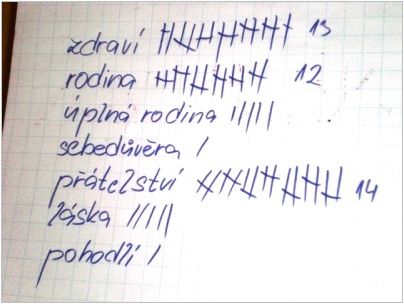 zdraví 13
rodina 12
úplná rodina |||||
sebedůvěra |
přátelství 14
láska |||||
pohodlí |